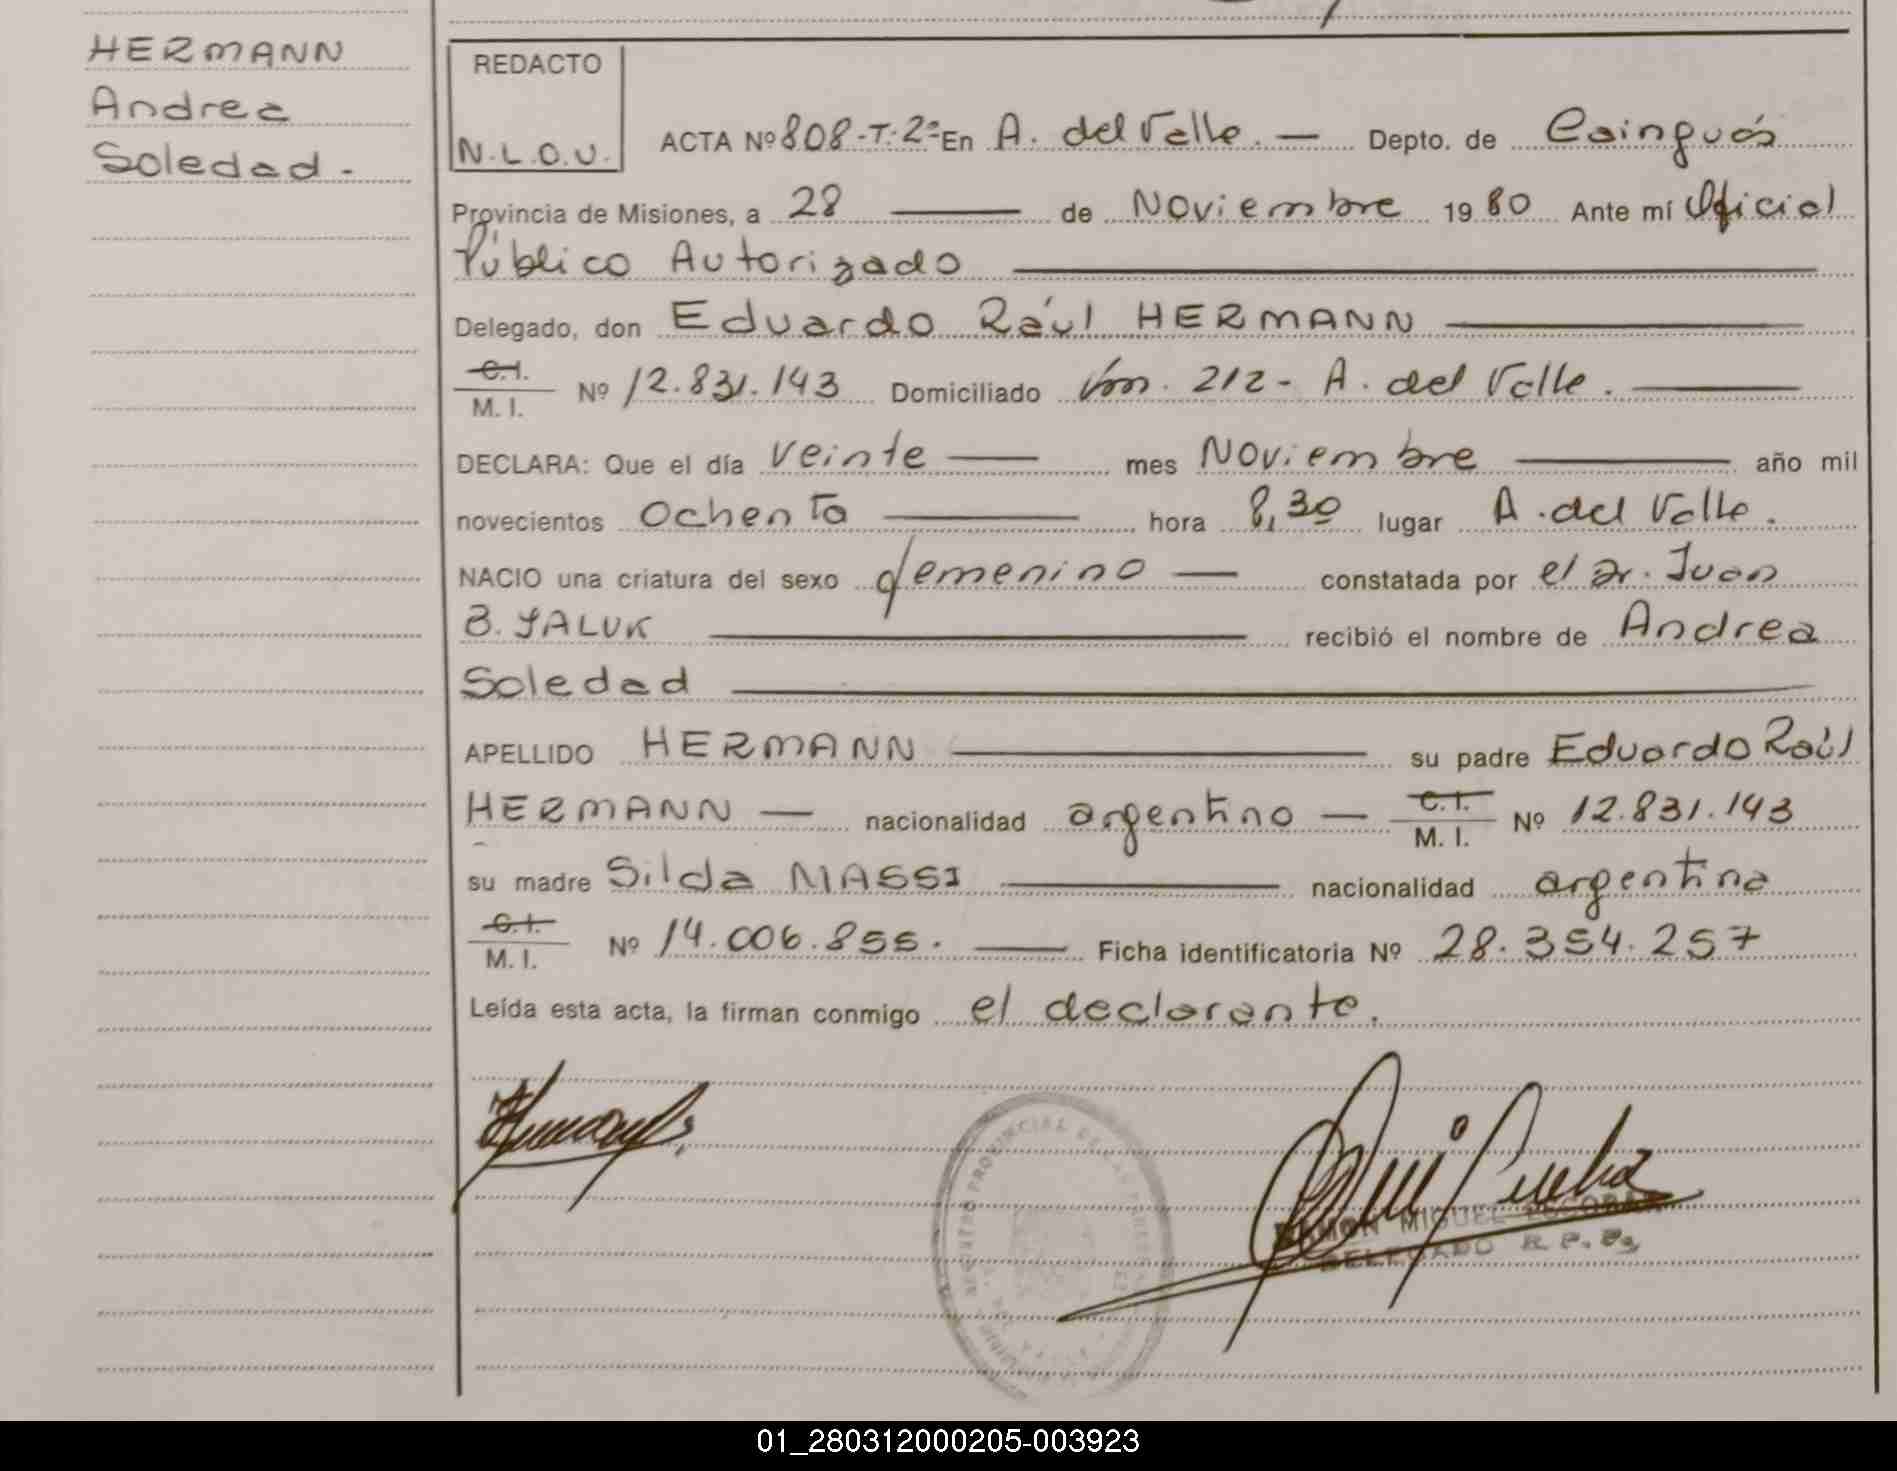 HERMANN
Andrea
Soledad -
REDACTO
N.L.O.U.
ACTA Nº 808-T.2º En A. del Valle. — Depto. de Cainguás
Provincia de Misiones, a 28 — de Noviembre 1980 Ante mí Oficial
Público Autorizado —
Delegado, don Eduardo Raúl HERMANN —
C.I.
M. I. Nº 12.831.143 Domiciliado Km. 212 - A. del Valle. —
DECLARA: Que el día veinte — mes Noviembre — año mil
novecientos ochenta — hora 8,30 lugar A. del Valle.
NACIO una criatura del sexo femenino — constatada por el Dr. Juan
B. YALUK — recibió el nombre de Andrea
Soledad —
APELLIDO HERMANN — su padre Eduardo Raúl
HERMANN — nacionalidad argentino — C.I. M. I. Nº 12.831.143
su madre Silda MASSI — nacionalidad argentina
C.I.
M. I. Nº 14.006.855. — Ficha identificatoria Nº 28.354.257
Leída esta acta, la firman conmigo el declarante.
REGISTRO PROVINCIAL DE LAS PERSONAS
RAMON MIGUEL ESCOBAR
DELEGADO R. P. Ps
01_280312000205-003923